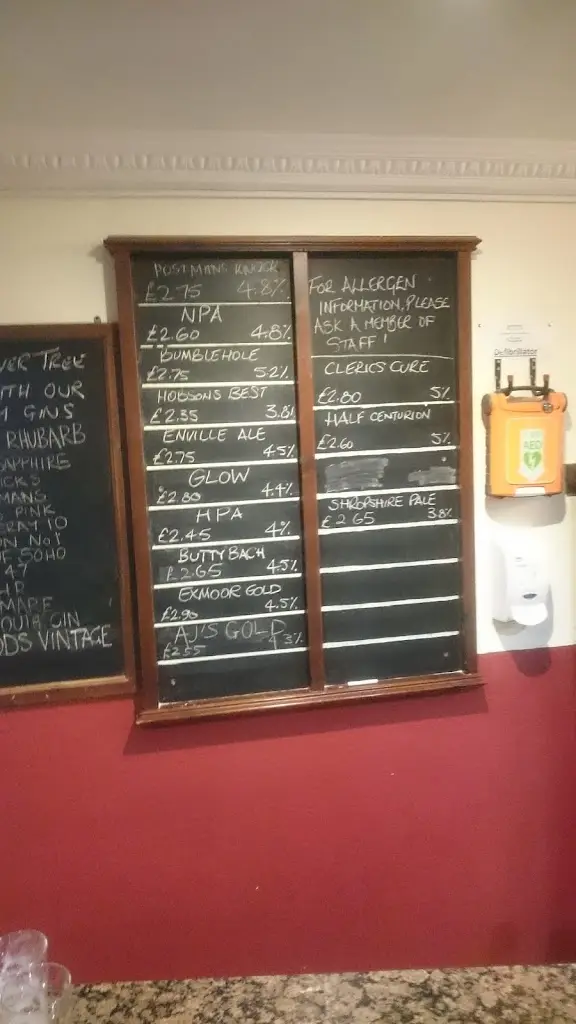 VER TREE
ITH OUR
GINS
RHUBARB
SAPPHIRE
ICKS
MANS
PINK
RAY 10
ON NO1
OF SOHO
47
MARE
GIN
ODS VINTAGE
POSTMANS KNOCK
£2.75 4.8%
NPA
£2.60 4.8%
BUMBLEHOLE
£2.75 5.2%
HOBSONS BEST
£2.35 3.8%
ENVILLE ALE
£2.75 4.5%
GLOW
£2.80 4.4%
HPA
£2.45 4%
BUTTY BACH
£2.65 4.5%
EXMOOR GOLD
£2.90 4.5%
AJ'S GOLD
£2.55 3%
FOR ALLERGEN
INFORMATION, PLEASE
ASK A MEMBER OF
STAFF!
CLERICS CURE
£2.80 5%
HALF CENTURION
£2.60 5%
SHROPSHIRE PALE
£2.65 3.8%
Defibrillator
AED